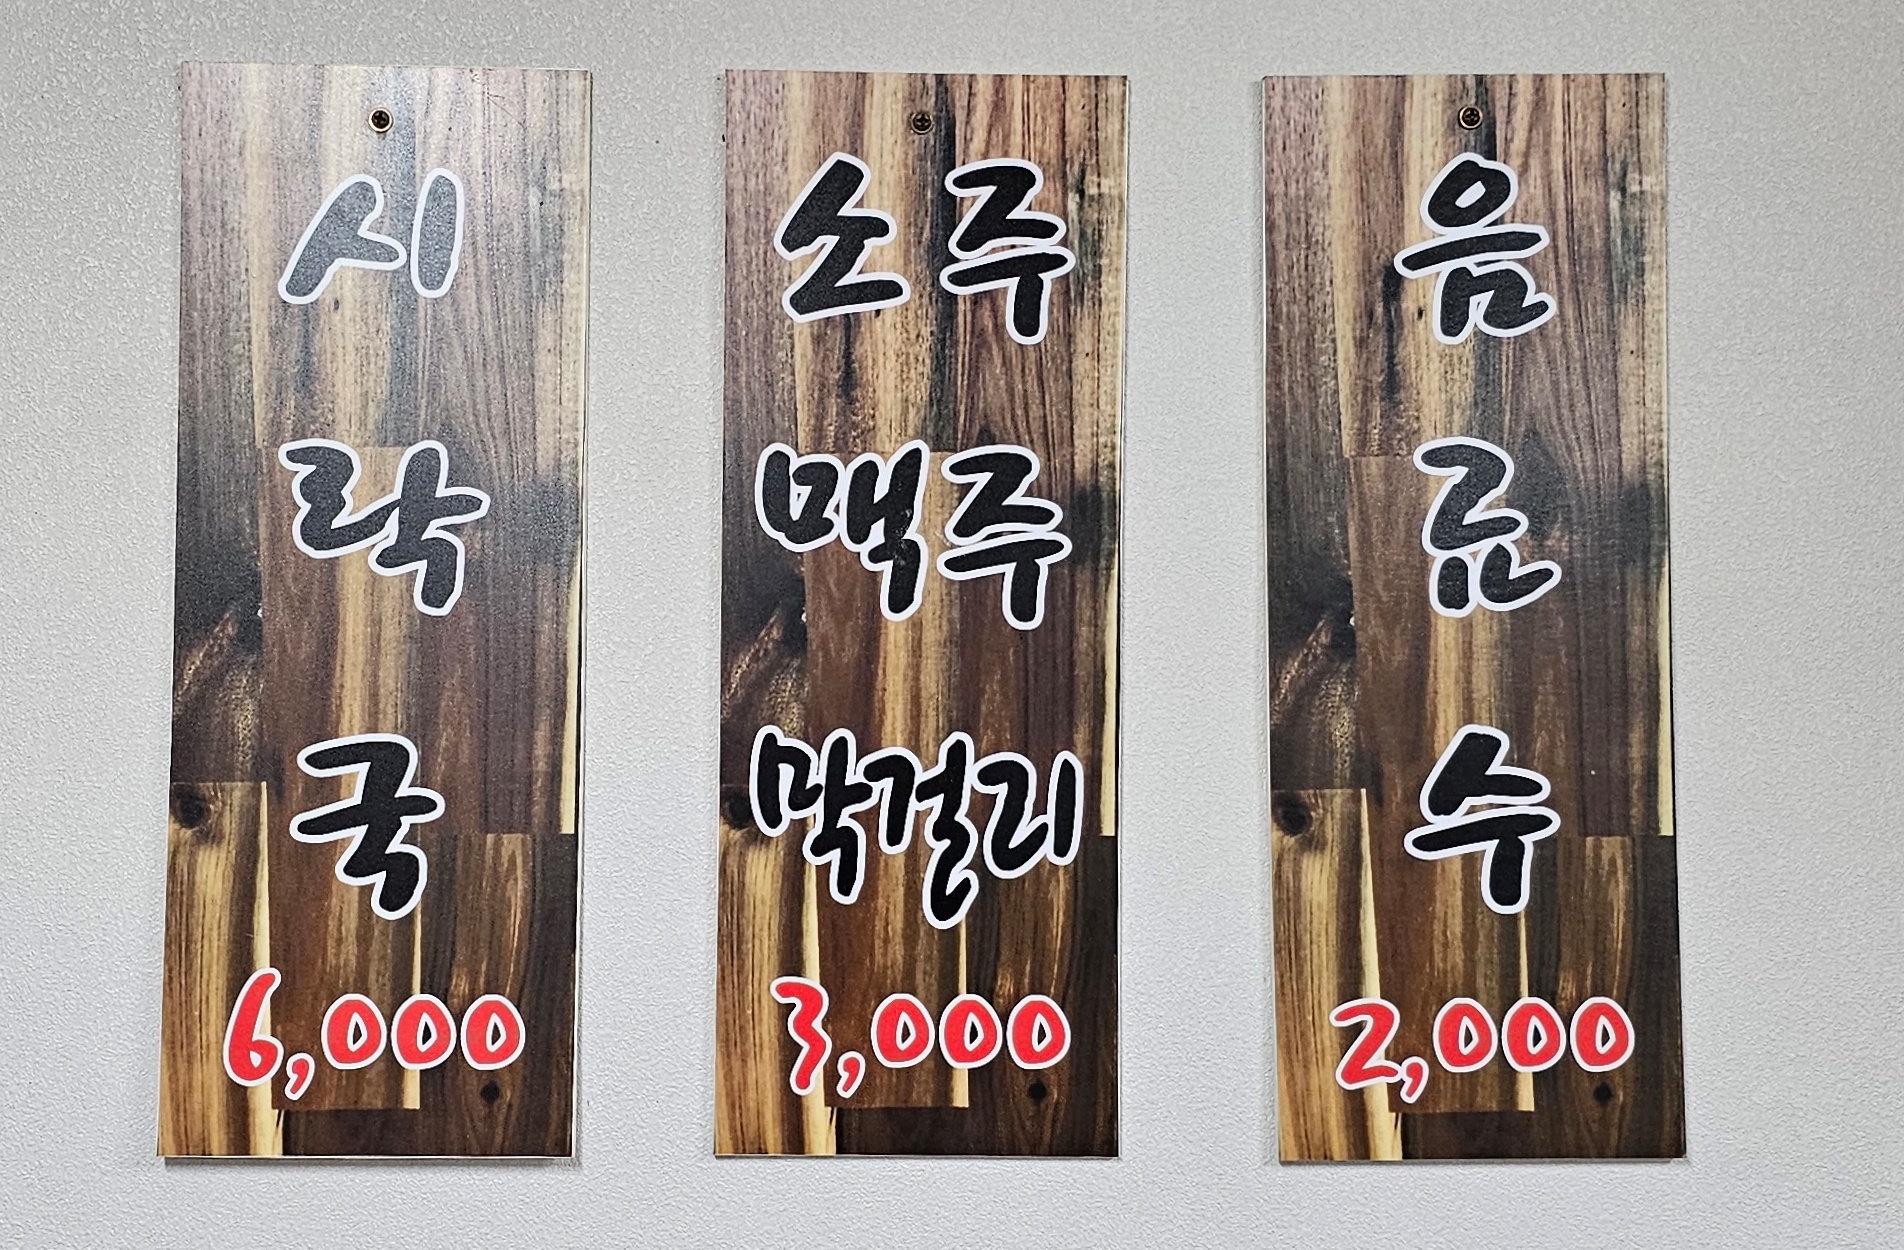 시
락
국
6,000
소주
맥주
막걸리
3,000
음
료
수
2,000